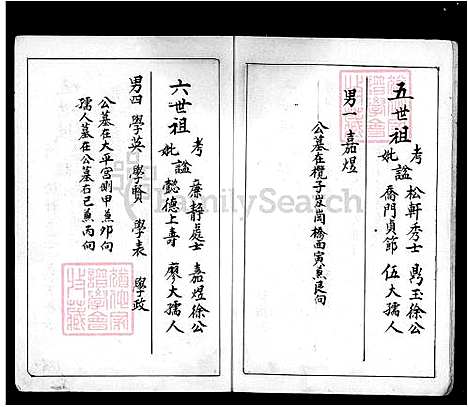 五世祖
考 松軒秀士 鼎玉徐公
妣 諡 喬門貞節 伍大孺人
男一 嘉煜
公墓在欖子崀崗橋面寅兼艮向
六世祖
考 廉靜處士 嘉煜徐公
妣 諡 懿德上壽 廖大孺人
男四 學英 學賢 學表 學政
公墓在大平宮側甲兼卯向
孺人墓在公墓右巳兼丙向
FamilySearch